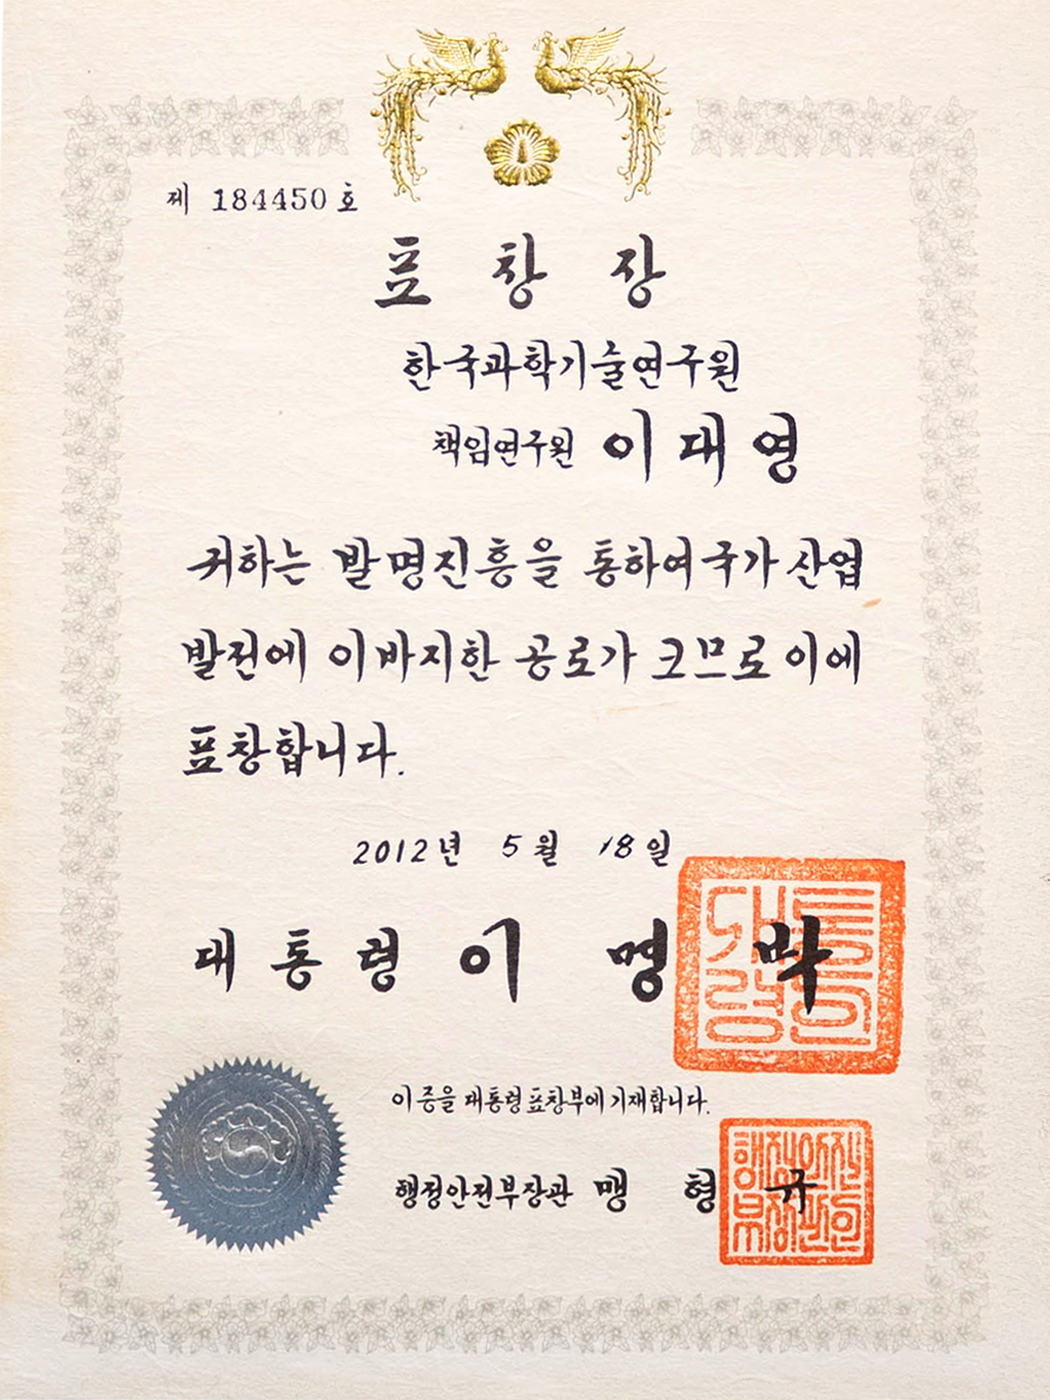 제 184450 호
표창장
한국과학기술연구원
책임연구원 이대영
귀하는 발명진흥을 통하여 국가 산업
발전에 이바지한 공로가 크므로 이에
표창합니다.
2012년 5월 18일
대통령 이명박
이 증을 대통령 표창부에 기재합니다.
행정안전부장관 맹형규